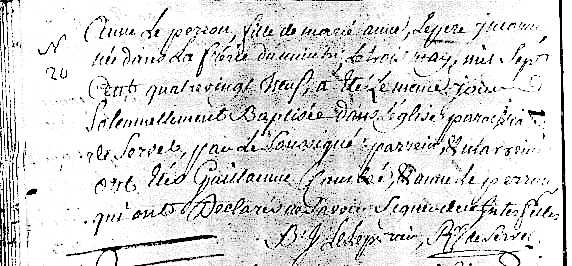 N
20
Anne Le perron, fille de marie anne, Le pere inconnu
née dans La frérie du , Le trois may, mil Sept
Cent quatrevingt Neuf, a été Le meme jour
Solennellement Baptisée dans L'église paroissia
de Servel, par Le Soussigné: parrein, & marrein
ont Etés Guillaume , & anne Le perron
qui ont Declarés ne Savoir Signer de ce Interpellés
de Servel